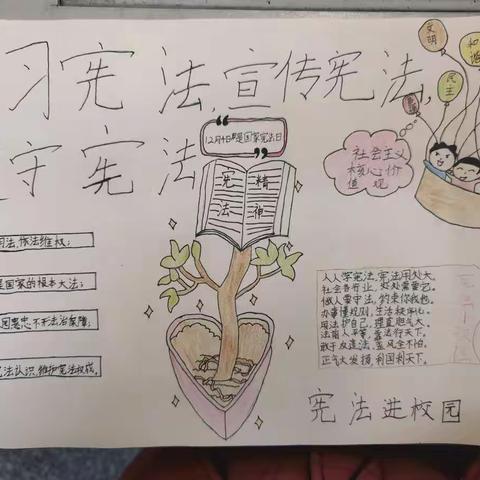 习宪法,宣传宪法,
守宪法
12月4日是国家宪法日
宪 精
法 神
文明
和谐
民主
社会主义
核心价
值观
法,依法维权;
是国家的根本大法;
法认识,维护宪法权威.
人人学宪法,宪法用处大。
社会各行业,处处需要它。
做人要守法,约束你我他。
办事懂规则,生活秩序化。
用法护自己,理直胆气大。
法前人平等,宪法行天下。
敢于反违法,歪风全不怕。
正气大发扬,利国利天下。
宪法进校园